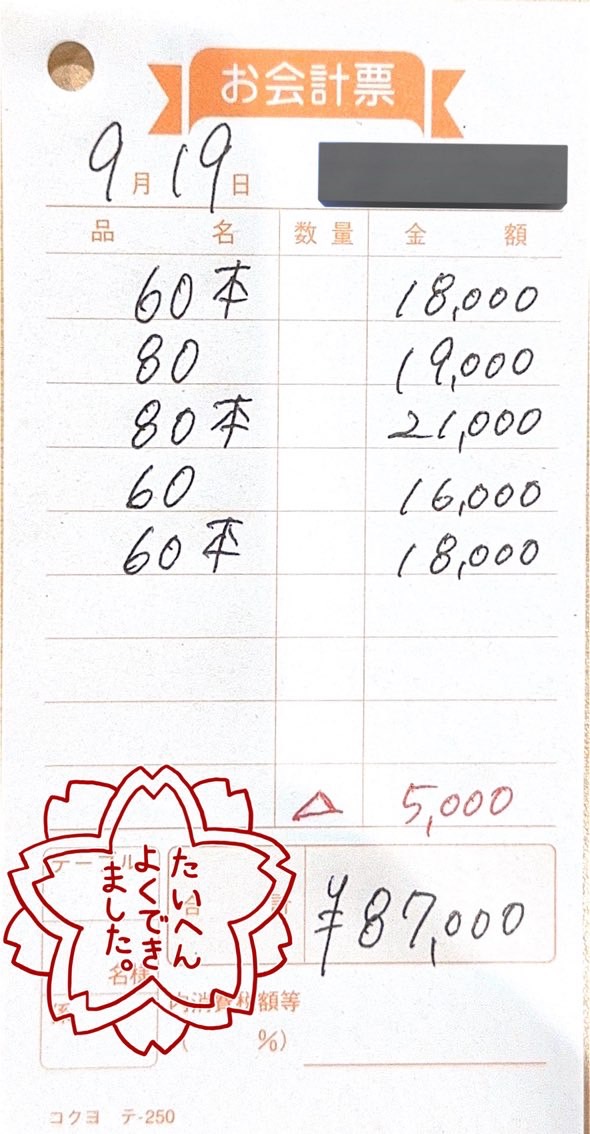 お会計票
9月19日
品名 数量 金額
60本 18,000
80 19,000
80本 21,000
60 16,000
60本 18,000
△ 5,000
テーブル
合計 ¥87,000
たいへん
よくでき
ました。
名様
係
内消費税額等
( %)
コクヨ テ-250